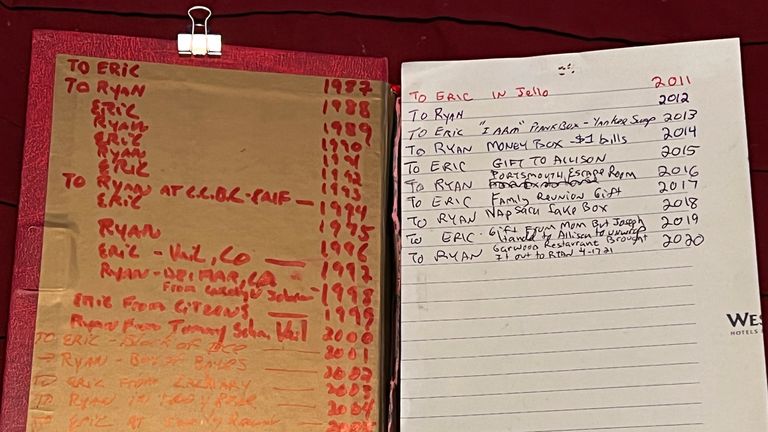 TO ERIC 1987
TO RYAN 1988
ERIC 1989
RYAN 1990
ERIC 1991
RYAN 1992
ERIC 1993
TO RYAN AT C.C.B.C. - 1994
ERIC 1995
RYAN 1996
ERIC - Vail, CO 1997
RYAN - DEL MAR, CA 1998
FROM
ERIC FROM CITIZENS 1999
RYAN FROM Tommy Vail 2000
TO ERIC - BLOCK OF 2001
RYAN - BOX OF 2002
TO ERIC FROM ZACHARY 2003
TO RYAN IN 2004
TO ERIC AT 2005
TO ERIC IN Jello 2011
TO RYAN 2012
TO ERIC "I ARM" PRANK BOX - Yankee Swap 2013
TO RYAN MONEY BOX - $1 bills 2014
TO ERIC GIFT TO ALLISON 2015
TO RYAN PORTSMOUTH, Escape Room 2016
TO ERIC Family Reunion Gift 2017
TO RYAN Cake Box 2018
TO ERIC - Gift From MOM But Joseph 2019
Handed to Allison to unwrap
TO RYAN Garwood Restaurant Brought 2020
it out to RYAN 4-17-21
WES
HOTELS